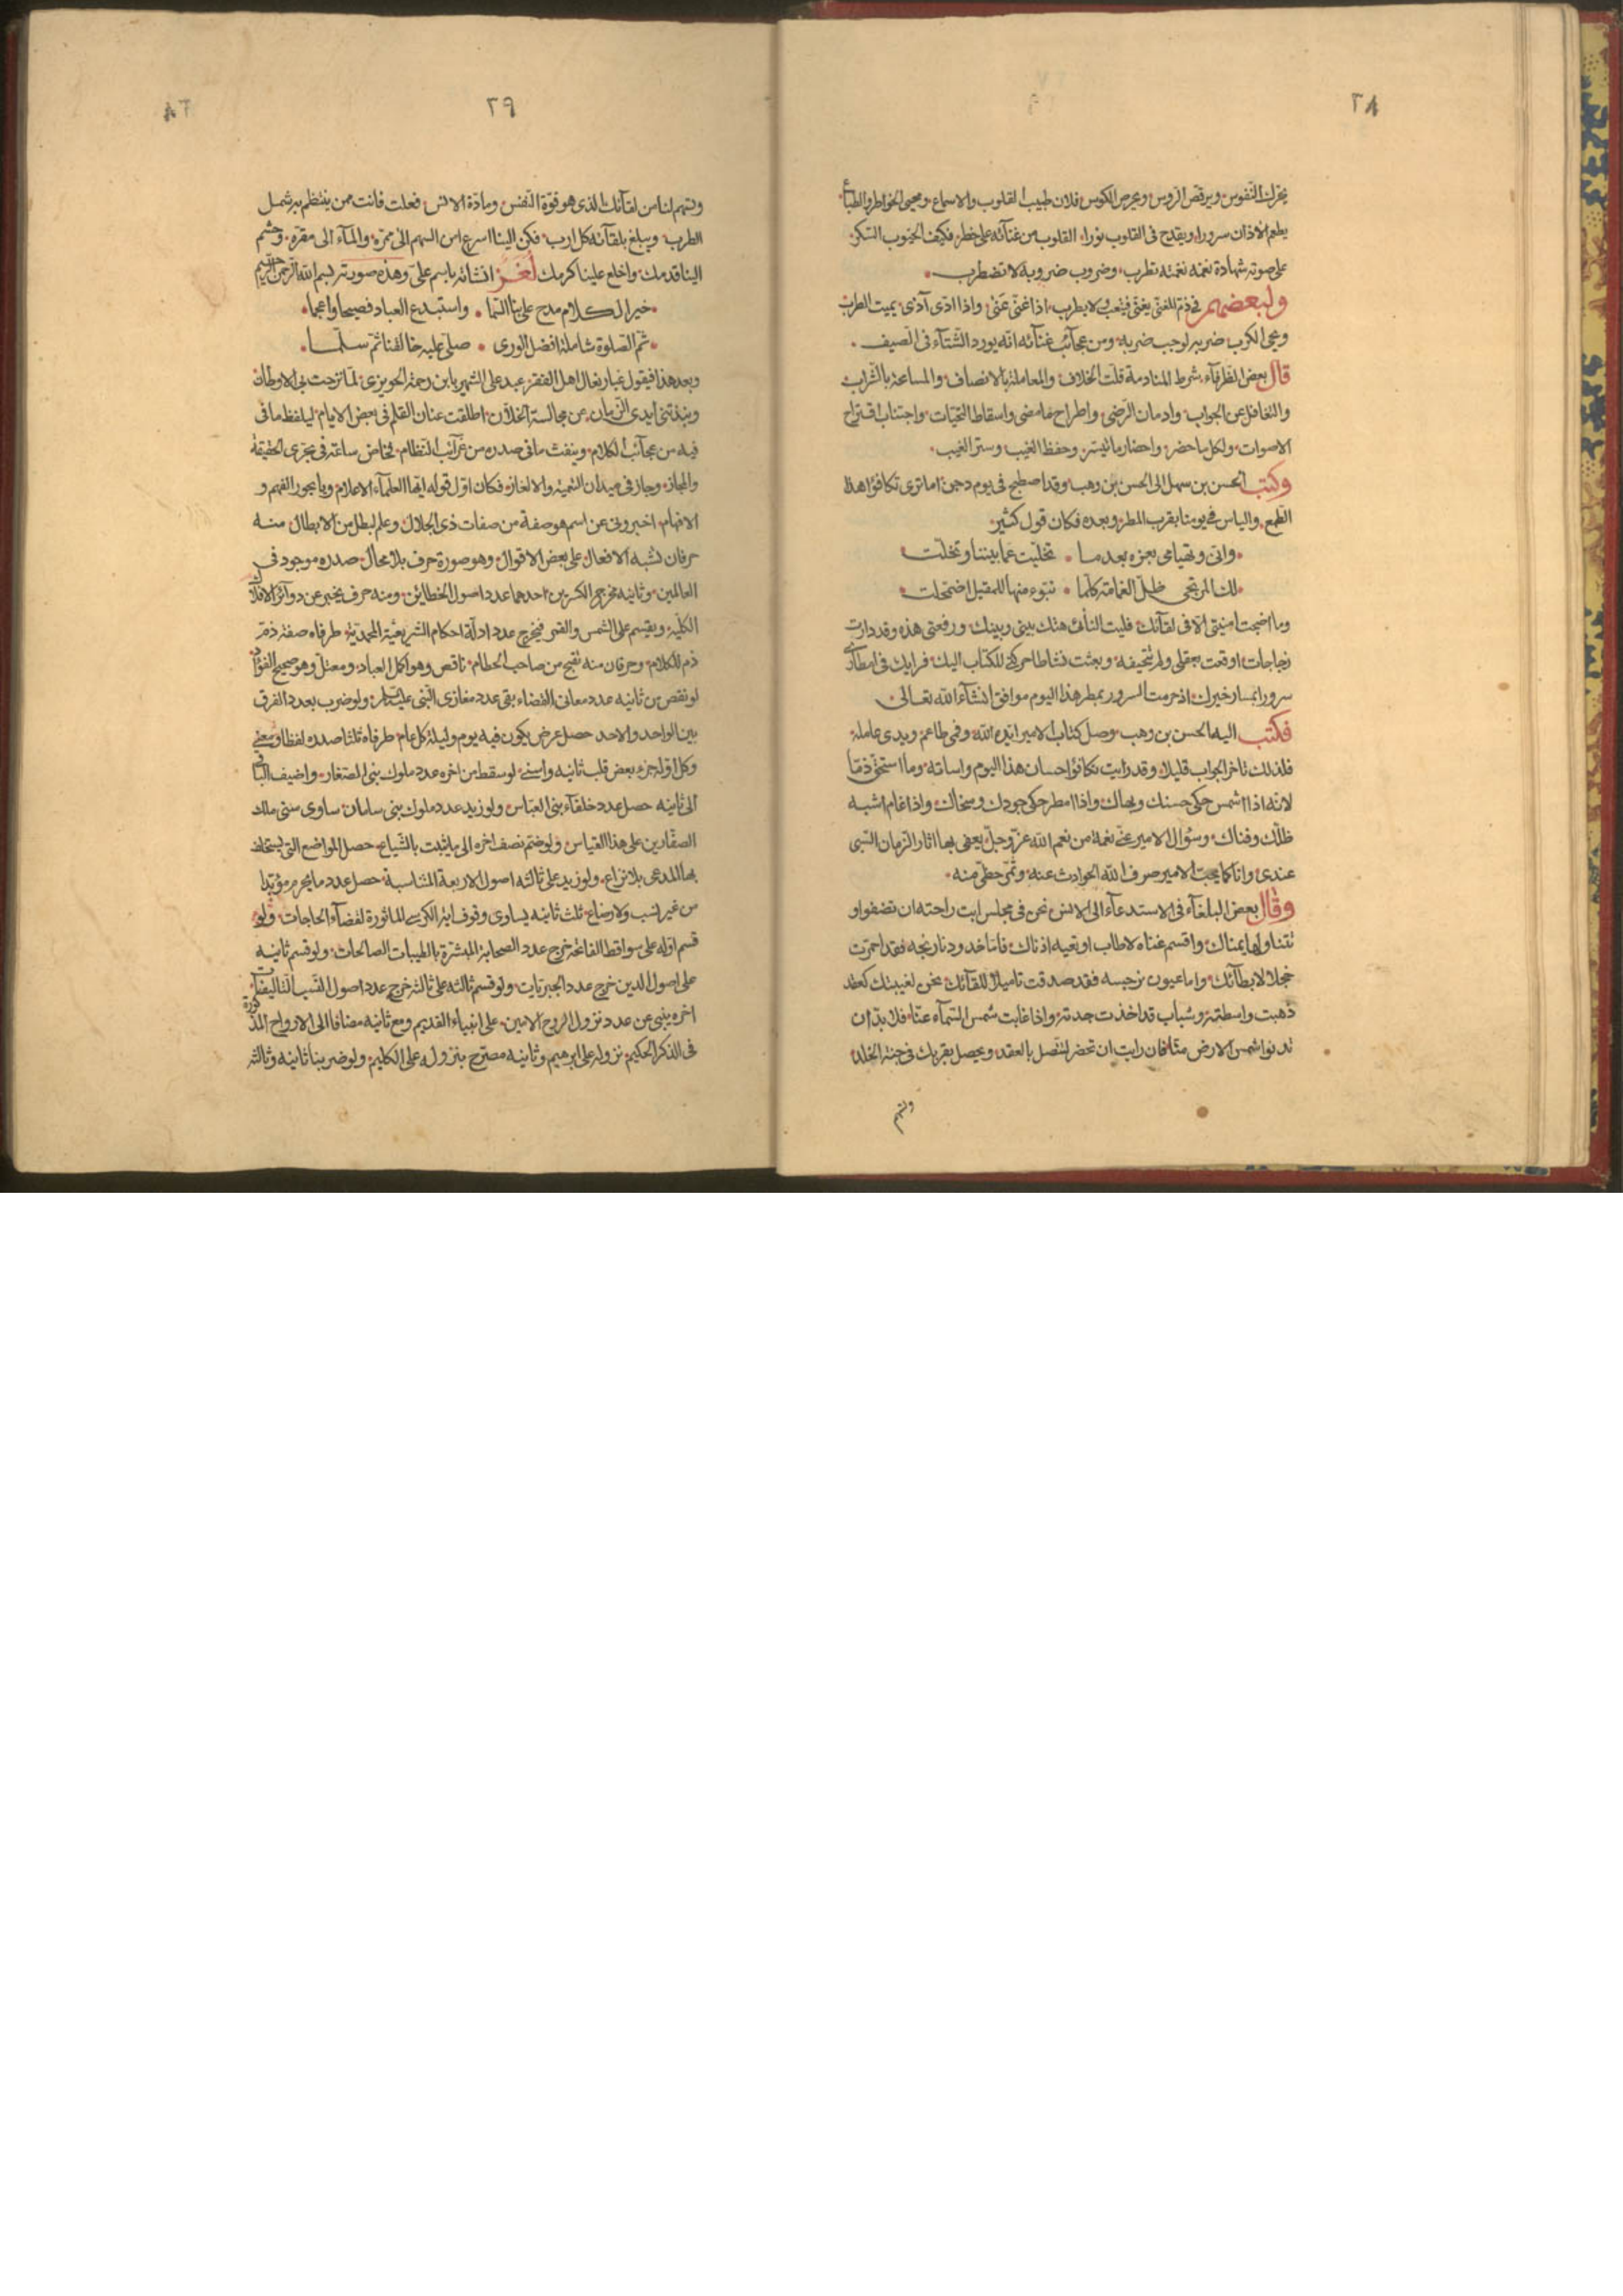 ٢٨
يحرك النفوس ويرقص الروس ويحرص الكوس فلان طبيب القلوب والاسماع ومحيى الخواطر والطباع
يطعم الاذان سرورا ويقدح فى القلوب نورا القلوب من غنائه على خطر فكيف الجيوب السكر
على صوته شهادة نغمه نغمته تطرب وضروب ضروبه لا تضطرب
ولبعضهم فى ذم المغنى يغنى فيتعب ولا يطرب اذا غنى عنى واذا ادى آذى يميت الطرب
ويحيى الكرب ضربه لوجب ضربه ومن عجائب غنائه انه يورد الشتاء فى الصيف
قال بعض الظرفاء شرط المنادمة قلت الخلاف والمعاملة بالانصاف والمسامحة بالشراب
والتغافل عن الجواب وادمان الرضى واطراح ما مضى واسقاط التحيات واجتناب اقتراح
الاصوات ولكل ما حضر واحضار ما تيسر وحفظ الغيب وستر العيب
وكتب الحسن بن سهل الى الحسن بن وهب وقد اصطبح فى يوم دجن اما ترى تكافؤ هذا
الطمع والياس فى يومنا بقرب المطر وبعده فكان قول كثير
وانى وتهيامى بعزه بعد ما تخليت عما بيننا وتخلت
لك المرتجى ظل الغمامة كلما تبوء منها للمقيل اضمحلت
وما اصبحت امنيتى الا فى لقآئك فليت النأى هتك بينى وبينك ورقعتى هذه وقد دارت
زجاجات اوقعت بعقلى ولم تتحيفه وبعثت نشاطا حركنى للكتاب اليك فرايك فى امطارى
سرورا بسار خيرك اذ حرمت السرور بمطر هذا اليوم موافق انشآء الله تعالى
فكتب اليه الحسن بن وهب وصل كتاب الامير ايده الله وفمى طاعم ويدى عاملة
فلذلك تاخر الجواب قليلا وقد رايت تكافؤ احسان هذا اليوم واساته وما استحق ذما
لانه اذا اشمس حكى حسنك وبهاك واذا امطر حكى جودك وسخاك واذا غام اشبه
ظلك وفناك وسؤال الامير عنى نعمة من نعم الله عز وجل يعفى بها اثار الزمان السيى
عندى وانا كما يحب الامير صرف الله الحوادث عنه وتمى حظى منه
وقال بعض البلغآء فى الاستدعآء الى الانس نحن فى مجلس ابت راحته ان تصفو او
تتناولها يمناك واقسم غناه لا طاب او تعيه اذناك فاما خدود نارنجه فقد احمرت
خجلا لابطآئك واما عيون نرجسه فقد صدقت تاميلا للقآئك نحن لغيبتك كعقد
ذهبت واسطته وشباب قد اخذت جدته واذا غابت شمس السمآء عنا فلا بد ان
تدنو شمس الارض منا فان رايت ان تحضر لتتصل بالعقد ويحصل بقربك فى جنة الخلد
وتسهم
٢٩
وتسهم لنا من لقآئك الذى هو قوة النفس ومادة الانس فعلت فانت من ينتظم به شمل
الطرب ويبلغ بلقآئه كل ارب فكن الينا اسرع من السهم الى ممره والمآء الى مقره وجشم
الينا قدمك واخلع علينا كرمك لغز انشاته باسم على وهذه صورته بسم الله الرحمن الرحيم
خير الكلام مدح على بنا السما واستبدع العباد فصيحا واعجما
ثم الصلوة شاملة افضل الورى صلى عليه خالقنا ثم سلما
وبعد هذا فيقول غبار نعال اهل الفقر عبد على الشهير بابن رحمة الحويزى لما نزحت بى الاوطان
ونبذتنى ايدى الزمان عن مجالسة الخلان اطلقت عنان القلم فى بعض الايام ليلفظ ما فى
فيه من عجائب الكلام وينفث ما فى صدره من غرآئب النظام فخاض ساعة فى بحرى الحقيقة
والمجاز وجاز فى ميدان التعمية والالغاز فكان اول قوله ايها العلمآء الاعلام ويا بحور الفهم و
الافهام اخبرونى عن اسم هو صفة من صفات ذى الجلال وعلم لبطل من الابطال منه
حرفان تشبه الافعال على بعض الاقوال وهو صورة حرف بلا محال صدره موجود فى
العالمين وثانيه مخرج الكسرين احدهما عدد اصول الخطاين ومنه حرف يخبر عن دوآئر الافلاك
الكلية ويقسم على الشمس والقمر فيخرج عدد ادلة احكام الشريعة المحمدية طرفاه صفة ذم
ذم للكلام وحرفان منه تقبح من صاحب الحطام ناقص وهو اكمل العباد ومعتل وهو صحيح الفؤاد
لو نقص من ثانيه عدد معانى القضاء بقى عدد مغازى النبى عليه السلام ولو ضرب بعدد الفرق
بين الواحد والاحد حصل عرض يكون فيه يوم وليلة كل عام طرفاه ثلثا صدره لفظا ومعنى
وكل اوله جزء بعض قلب ثانيه واسنى لو سقط من اخره عدد ملوك بنى الصفار واضيف الباقى
الى ثانيه حصل عدد خلفآء بنى العباس ولو زيد عدد ملوك بنى سامان ساوى سنى ملك
الصفارين على هذا القياس ولو ضم نصف اخره الى ما يثبت بالشياع حصل المواضع التى يستحلف
بها المدعى بلا نزاع ولو زيد على ثالثه اصول الاربعة المتناسبة حصل عدد ما يحرم مؤبدا
من غير نسب ولا رضاع ثلث ثانيه يساوى وقوف اية الكرسى الماثورة لقضآء الحاجات ولو
قسم اوله على سواقط الفاتحة خرج عدد الصحابة المبشرة بالطيبات الصالحات ولو قسم ثانيه
على اصول الدين خرج عدد الجبريات ولو قسم ثالثه على ثالثه خرج عدد اصول النسب التاليفيات
اخره ينبى عن عدد نزول الروح الامين على انبياء القديم ومع ثانيه مضافا الى الارواح المذكورة
فى الذكر الحكيم نزوله على ابرهيم وثانيه مصرح بنزوله على الكليم ولو ضربنا ثانيه وثالثه